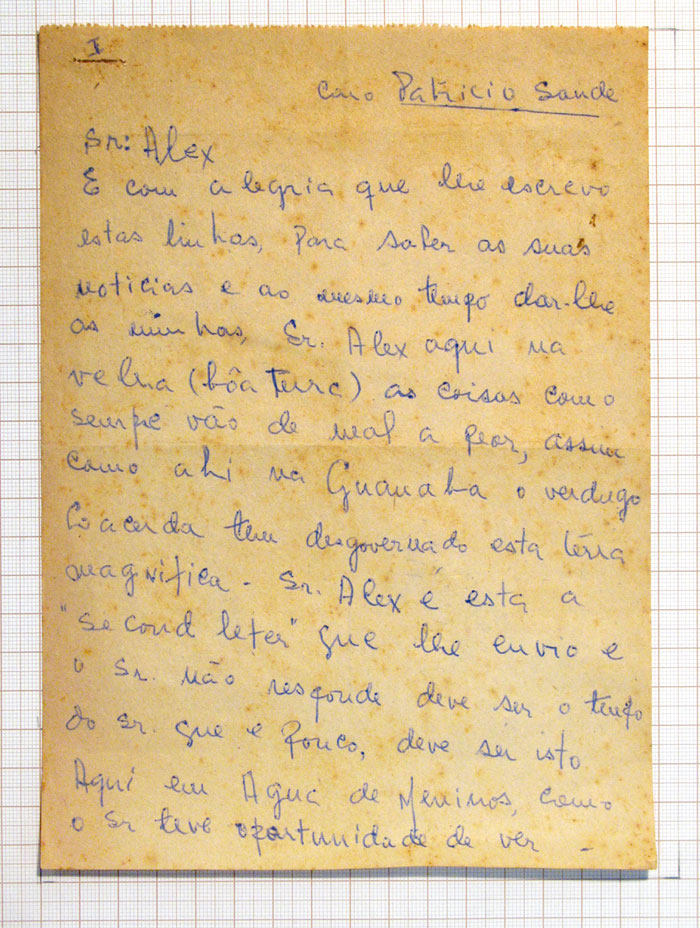 I
Caro Patricio Saude
Sr: Alex
E com alegria que lhe escrevo
estas linhas, Para saber as suas
noticias e ao mesmo tempo dar-lhe
as minhas, Sr. Alex aqui na
velha (bôa terra) as coisas como
sempre vão de mal a peor, assim
como ahi na Guanaba o verdugo
Lacerda tem desgovernado esta térra
magnifica - Sr. Alex é esta a
"Second leter" que lhe envio e
o Sr. não responde deve ser o tempo
do Sr. que e pouco, deve ser isto
Aqui em Agua de Meninos, como
o Sr teve oportunidade de ver -